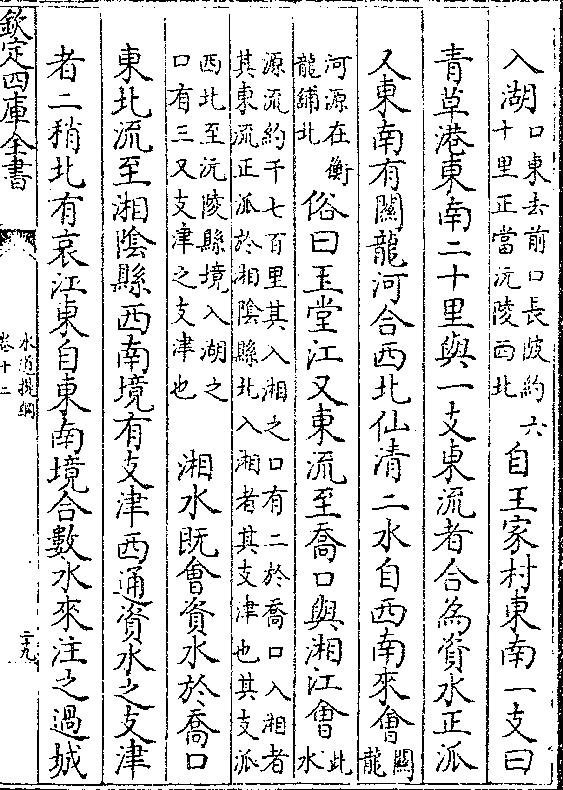 入湖口東去前口長陂約六
十里正當沅陵西北自王家村東南一支曰
青草港東南二十里與一支東流者合為資水正派
又東南有關龍河合西北仙清二水自西南來會關龍
河源在衡
龍鋪北俗曰玉堂江又東流至喬口與湘江會此水
源流約千七百里其入湘之口有二於喬口入湘者
其東流正派於湘陰縣北入湘者其支津也其支派
西北至沅陵縣境入湖之
口有三又支津之支津也 湘水既會資水於喬口
東北流至湘陰縣西南境有支津西通資水之支津
者二稍北有哀江東自東南境合數水來注之過城
欽定四庫全書
水道提綱
卷十二
二十九